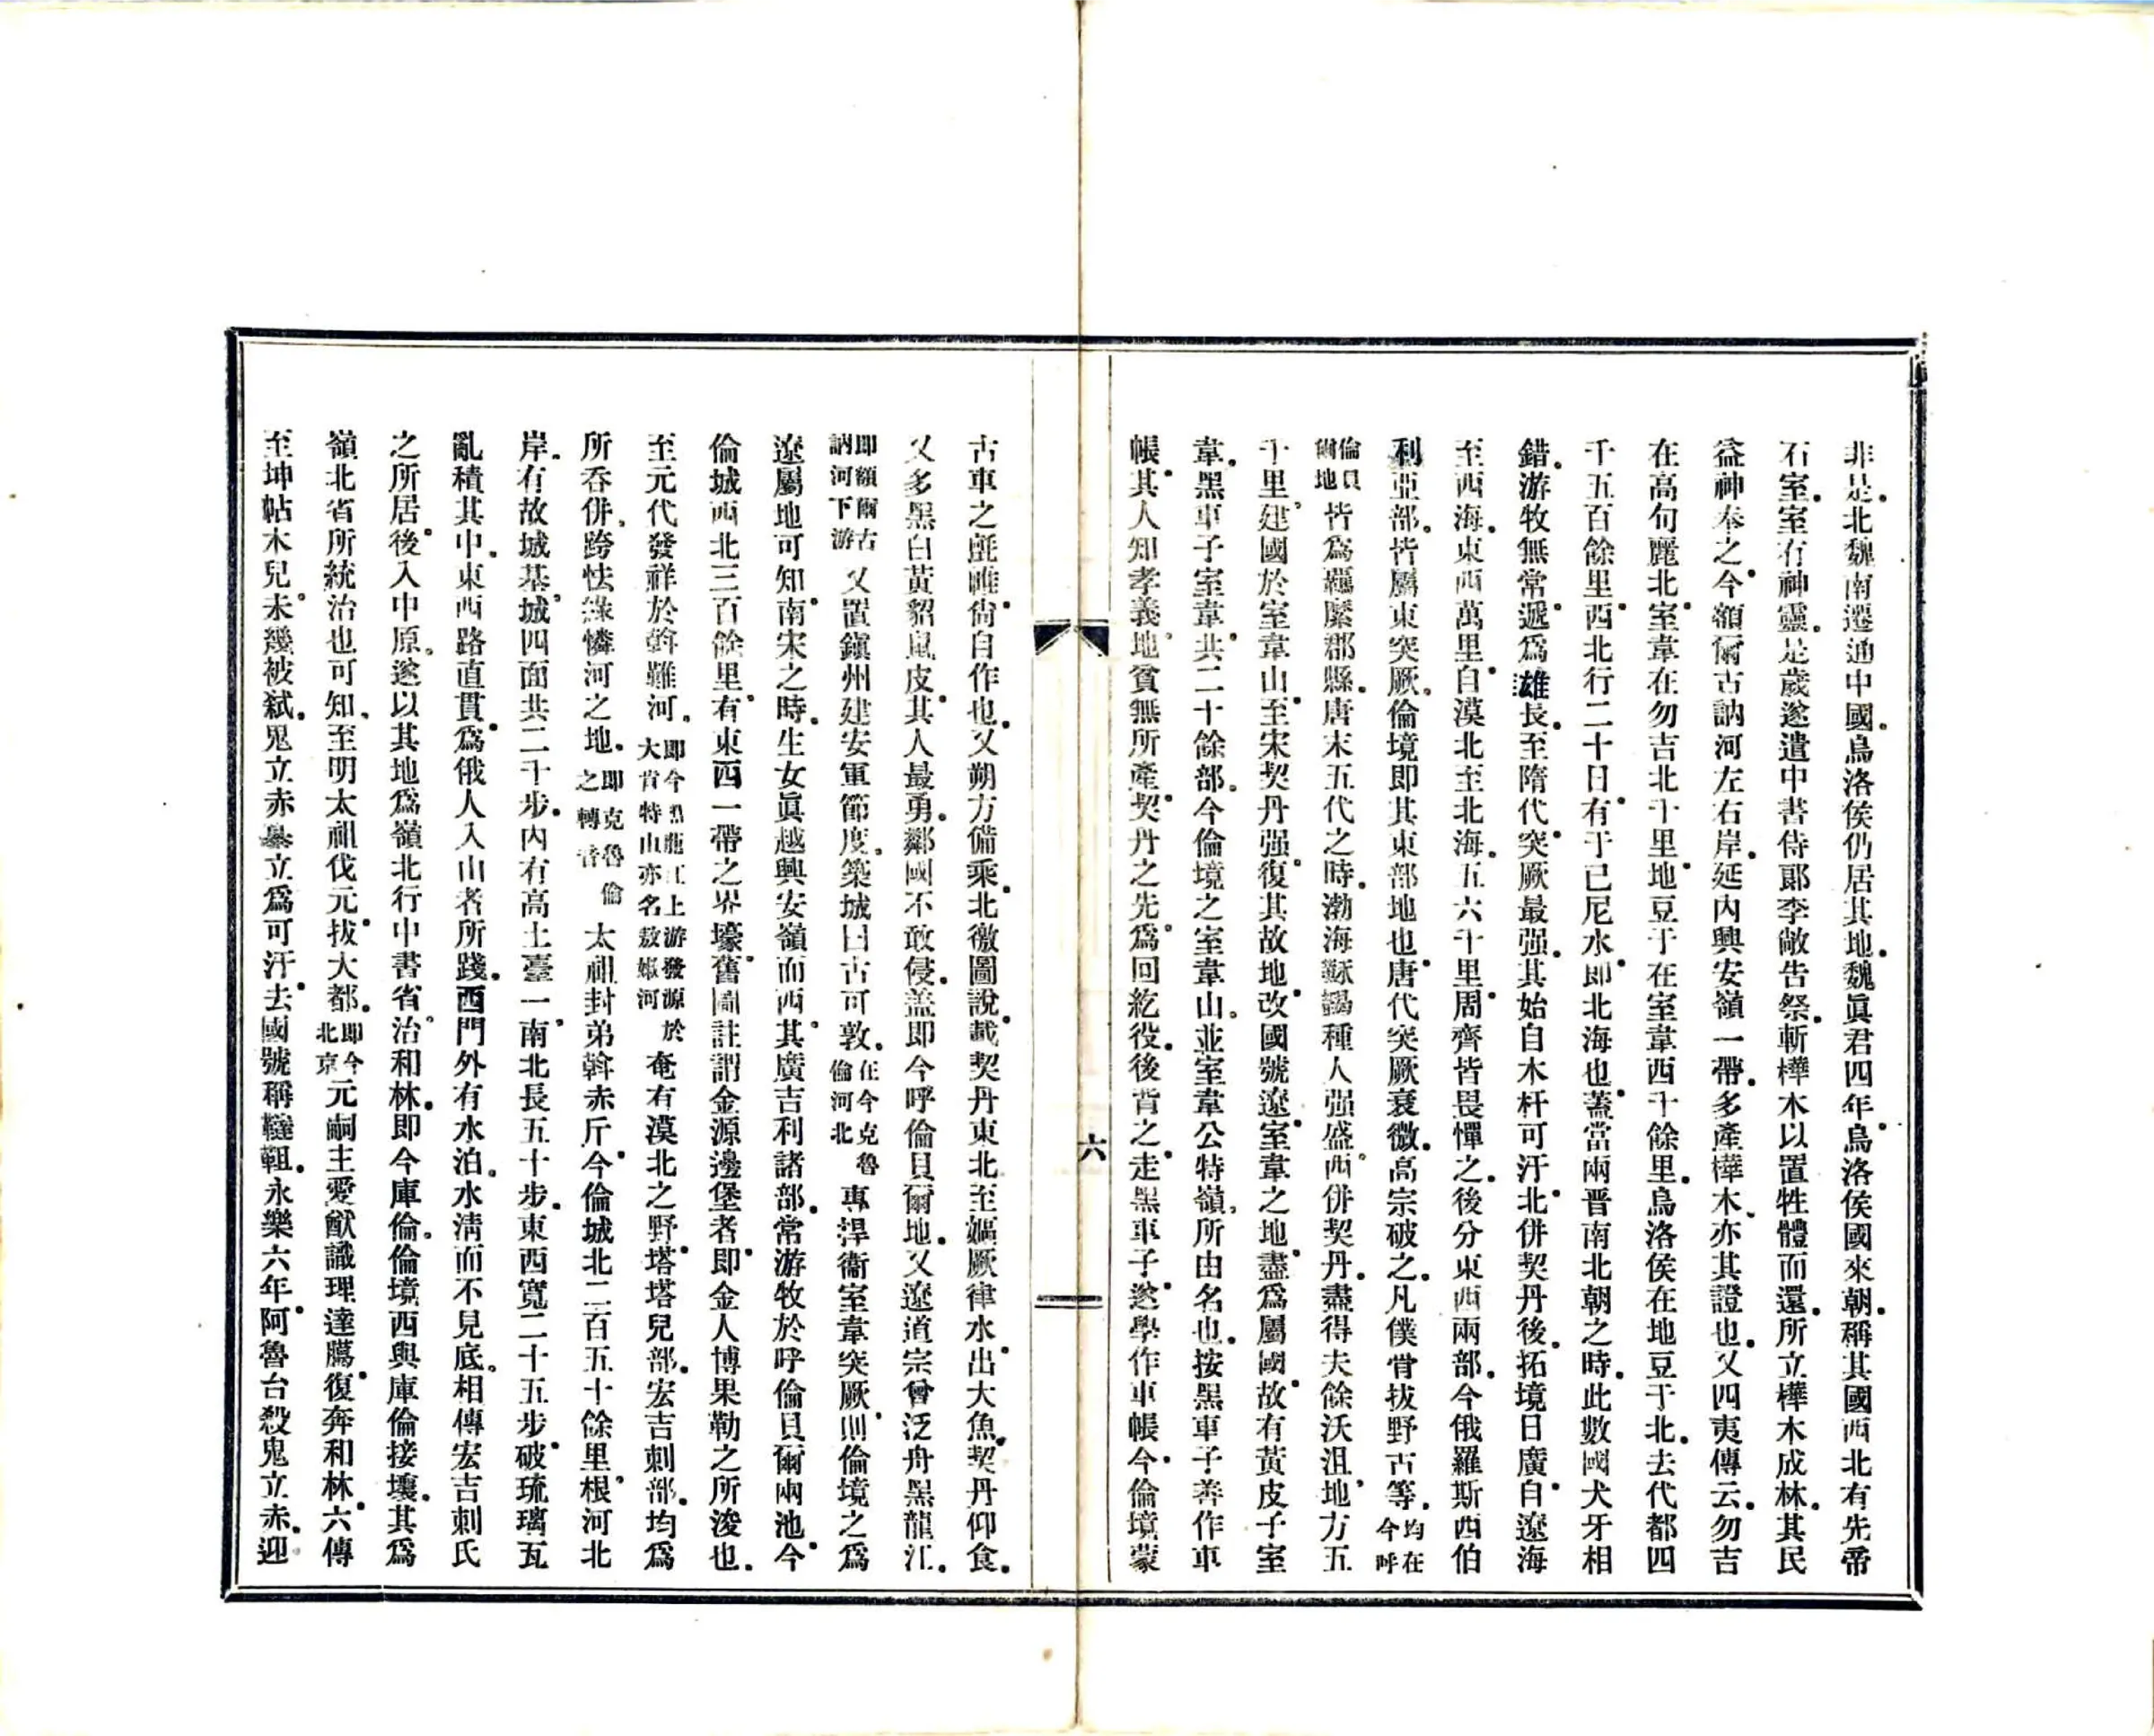 非是。北魏南遷通中國。烏洛侯仍居其地。魏眞君四年。烏洛侯國來朝。稱其國西北有先帝
石室。室有神靈。是歲遂遣中書侍郞李敞告祭。斬樺木以置牲體而還。所立樺木成林。其民
益神奉之。今額爾古訥河左右岸。延內興安嶺一帶。多產樺木。亦其證也。又四夷傳云。勿吉
在高句麗北。室韋在勿吉北千里。地豆于在室韋西千餘里。烏洛侯在地豆于北。去代都四
千五百餘里。西北行二十日。有于已尼水。即北海也。蓋當兩晋南北朝之時。此數國犬牙相
錯。游牧無常。遞爲雄長。至隋代。突厥最强。其始自木杆可汗。北併契丹後。拓境日廣。自遼海
至西海。東西萬里。自漠北至北海。五六千里。周齊皆畏憚之。後分東西兩部。今俄羅斯西伯
利亞部。皆屬東突厥。倫境即其東部地也。唐代突厥衰微。高宗破之。凡僕骨拔野古等。均在今呼
倫貝爾地皆爲羈縻郡縣。唐末五代之時。渤海靺鞨種人强盛。西併契丹。盡得夫餘沃沮地。方五
千里。建國於室韋山。至宋契丹强。復其故地。改國號遼。室韋之地。盡爲屬國。故有黃皮子室
韋。黑車子室韋。共二十餘部。今倫境之室韋山。並室韋公特嶺。所由名也。按黑車子善作車
帳。其人知孝義。地貧無所產。契丹之先。爲回紇役。後背之。走黑車子。遂學作車帳。今倫境蒙
六
古車之氈帷。尙自作也。又朔方備乘。北徼圖說。載契丹東北至嫗厥律水。出大魚。契丹仰食。
又多黑白黃貂鼠皮。其人最勇。鄰國不敢侵。盖即今呼倫貝爾地。又遼道宗曾泛舟黑龍江。
即額爾古訥河下游又置鎭州建安軍節度。築城曰古可敦。在今克魯倫河北專捍衞室韋突厥。則倫境之爲
遼屬地可知。南宋之時。生女眞越興安嶺而西。其廣吉利諸部。常游牧於呼倫貝爾兩池。今
倫城西北三百餘里。有東西一帶之界壕。舊圖註謂金源邊堡者。即金人博果勒之所浚也。
至元代發祥於斡難河。即今黑龍江上游發源於大肯特山亦名敖嫩河奄有漠北之野。塔塔兒部。宏吉剌部。均爲
所呑併。跨怯綠憐河之地。即克魯倫之轉音太祖封弟斡赤斤。今倫城北二百五十餘里。根河北
岸。有故城基。城四面共二千步。內有高土臺一。南北長五十步。東西寬二十五步。破琉璃瓦
亂積其中。東西路直貫。爲俄人入山者所踐。西門外有水泊。水淸而不見底。相傳宏吉剌氏
之所居。後入中原。遂以其地爲嶺北行中書省。治和林。即今庫倫。倫境西與庫倫接壤。其爲
嶺北省所統治也可知。至明太祖伐元。拔大都。即今北京元嗣主愛猷識理達臈。復奔和林。六傳
至坤帖木兒。未幾被弑。鬼立赤纂立爲可汗。去國號稱韃靼。永樂六年。阿魯台殺鬼立赤。迎